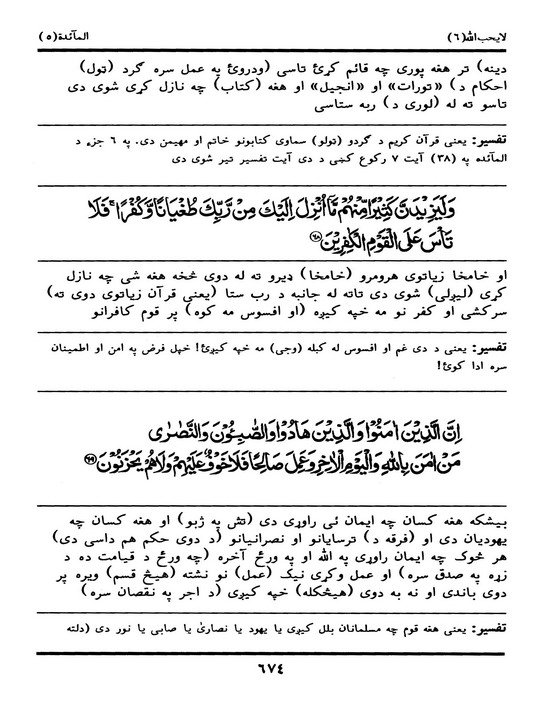 لايحب الله (٦)
المآئدة (٥)
دينه) تر هغه پوری چه قائم کړئ تاسی (ودروئ په عمل سره گرد (ټول)
احکام د) «تورات» او «انجيل» او هغه (کتاب) چه نازل کړی شوی دی
تاسو ته له (لوری د) ربه ستاسی
تفسير: يعنی قرآن کريم د گردو (ټولو) سماوی کتابونو خاتم او مهيمن دی. په ٦ جزء د
المآئده په (٣٨) آيت ٧ رکوع کښی د دی آيت تفسير تير شوی دی
وَلَيَزِيْدَنَّ كَثِيْرًا مِّنْهُمْ مَّآ اُنْزِلَ اِلَيْكَ مِنْ رَّبِّكَ طُغْيَانًا وَّكُفْرًا ۚ فَلَا
تَأْسَ عَلَى الْقَوْمِ الْكٰفِرِيْنَ ﴿٦٨﴾
او خامخا زياتوی هرومرو (خامخا) ډيرو ته له دوی څخه هغه شی چه نازل
کړی (ليږلی) شوی دی تاته له جانبه د رب ستا (يعنی قرآن زياتوی دوی ته)
سرکشی او کفر نو مه خپه کيږه (او افسوس مه کوه) پر قوم کافرانو
تفسير: يعنی د دی غم او افسوس له کبله (وجی) مه خپه کيږئ! خپل فرض په امن او اطمينان
سره ادا کوئ!
اِنَّ الَّذِيْنَ اٰمَنُوْا وَالَّذِيْنَ هَادُوْا وَالصّٰبِـُٔوْنَ وَالنَّصٰرٰى
مَنْ اٰمَنَ بِاللّٰهِ وَالْيَوْمِ الْاٰخِرِ وَعَمِلَ صَالِحًا فَلَا خَوْفٌ عَلَيْهِمْ وَلَا هُمْ يَحْزَنُوْنَ ﴿٦٩﴾
بيشکه هغه کسان چه ايمان ئی راوړی دی (تش په ژبو) او هغه کسان چه
يهوديان دی او (فرقه د) ترسايانو او نصرانيانو (د دوی حکم هم داسی دی)
هر څوک چه ايمان راوړی په الله او په ورځ آخره (چه ورځ د قيامت ده د
زړه په صدق سره) او عمل وکړی نيک (عمل) نو نشته (هيڅ قسم) ويره پر
دوی باندی او نه به دوی (هيڅکله) خپه کيږی (د اجر په نقصان سره)
تفسير: يعنی هغه قوم چه مسلمانان بلل کيږی يا يهود يا نصاریٰ يا صابی يا نور دی (دلته
٦٧٤